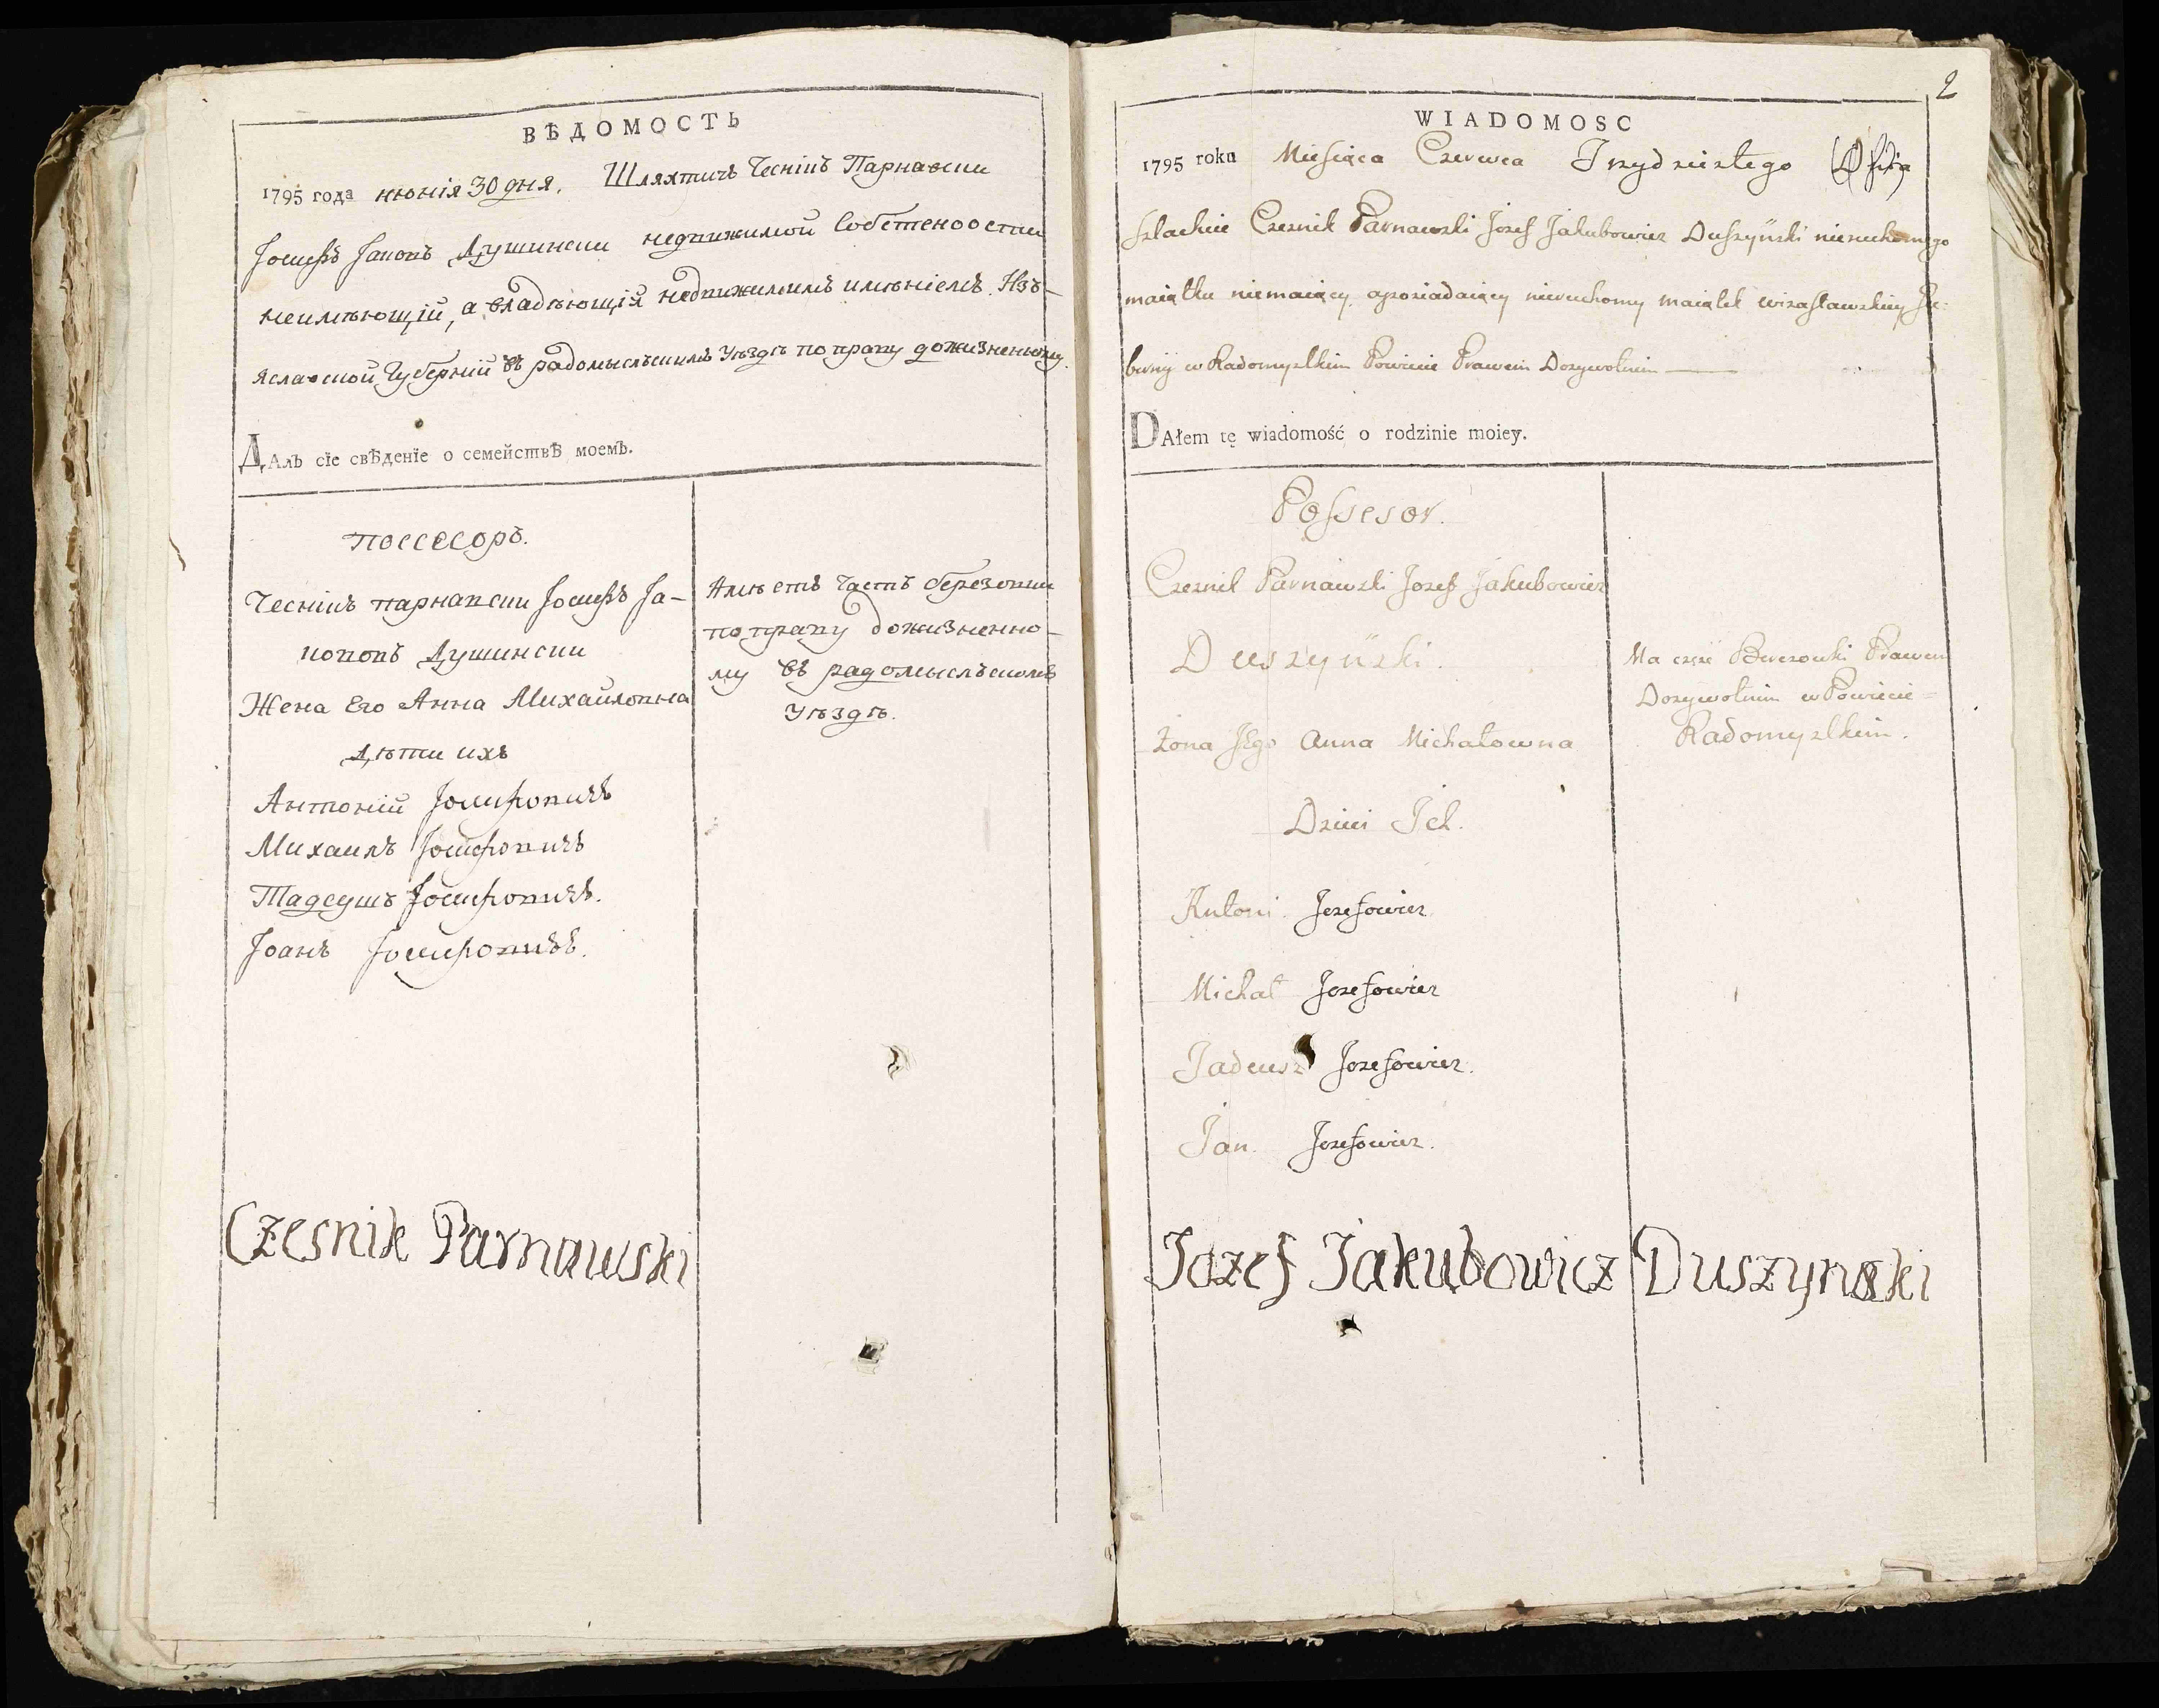 ВѢДОМОСТЬ
1795 года июнія 30 дня. Шляхтичъ Чесникъ Парнавски
Іосифъ Яковъ Душински недвижимой собственности
неимѣющій, а владѣющій недвижимымъ имѣніемъ. Изъ-
яславской Губерніи въ радомысльскимъ Уѣздѣ по праву дожизненному.
ДАлъ сїе свѣденїе о семействѣ моемъ.
поссесоръ.
Чесникъ парнавски Іосифъ Я-
кововъ Душински
Жена Его Анна Михайловна
Дѣти ихъ
Антоній Іосифовичъ
Михаилъ Іосифовичъ
Тадеушъ Іосифовичъ.
Іоанъ Іосифовичъ.
Имѣетъ часть березовки
по праву дожизненно-
му въ радомысльскомъ
Уѣздѣ.
Czesnik Parnawski
2
WIADOMOSC
1795 roku Miesiąca Czerwca Trzydziestego Dnia
Szlachcic Czesnik Parnawski Jozef Jakubowicz Duszyński nieruchomego
maiątku niemaiący, a posiadaiący nieruchomy maiątek w izasławskiey Gu-
bernij w Radomyslkim Powiecie Prawem Dozywotnim
DAłem tę wiadomość o rodzinie moiey.
Possesor.
Czesnik Parnawski Jozef Jakubowicz
Duszyński.
Zona Jego Anna Michałowna
Dzieci Ich.
Antoni Jozefowicz
Michał Jozefowicz
Tadeusz Jozefowicz.
Jan. Jozefowicz.
Ma część Berezowki Prawem
Dozywotnim w Powiecie
Radomyslkim.
Jozef Jakubowicz Duszynski